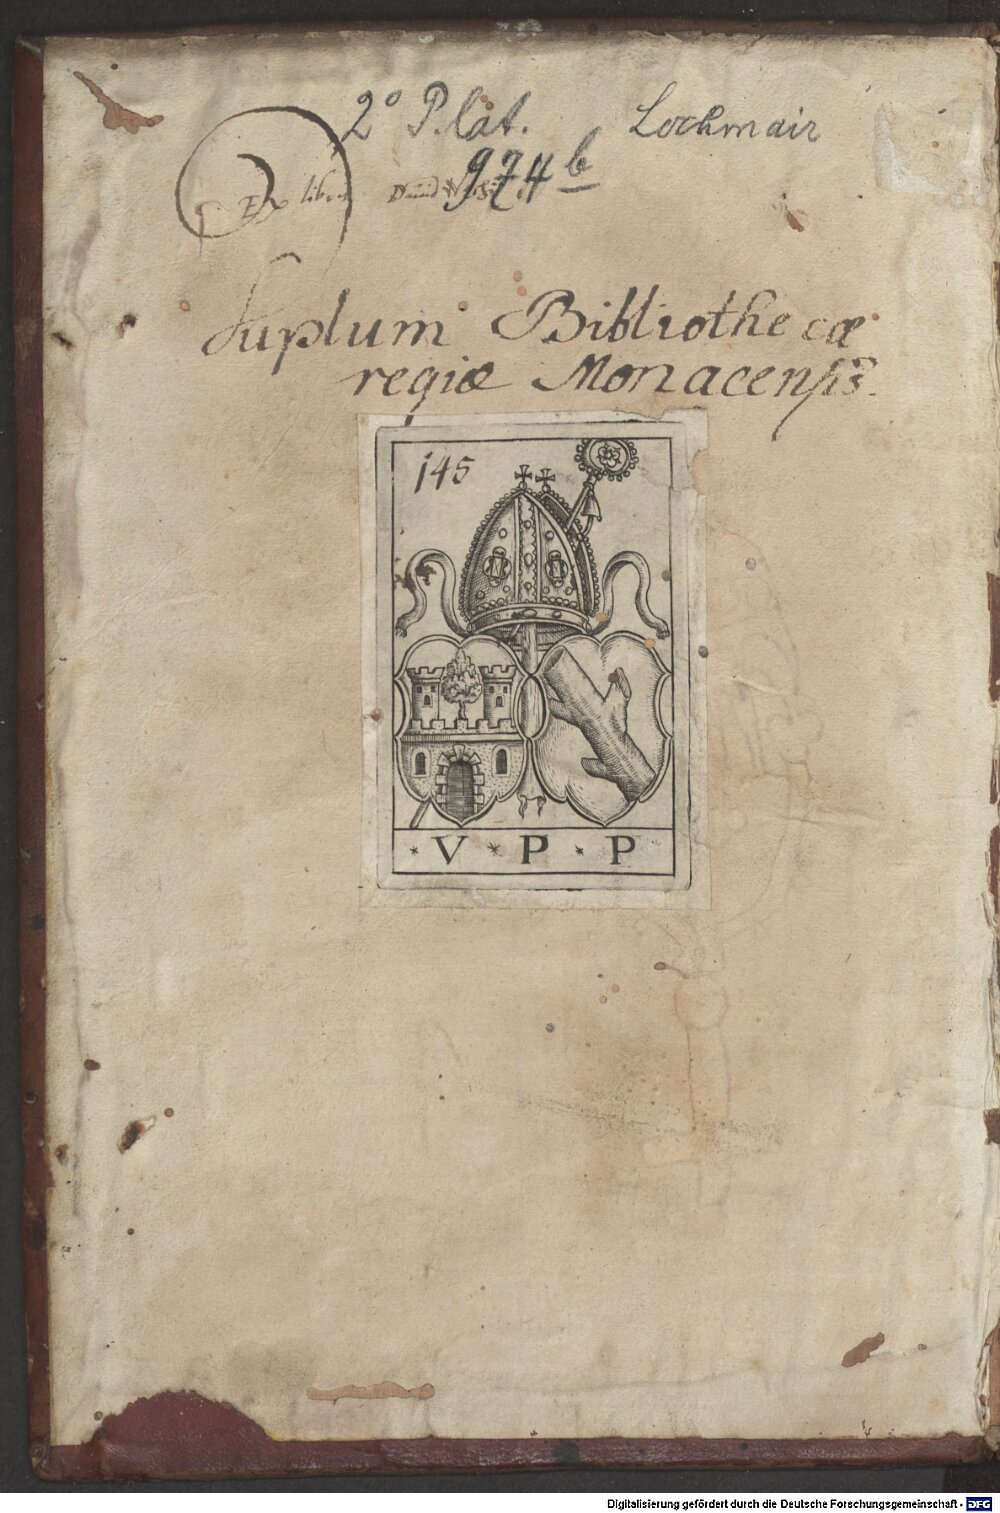 2° P. lat. Lochmair
974 b
Ex libris
Duplum Bibliothecæ
regiæ Monacensis.
145
* V * P * P
Digitalisierung gefördert durch die Deutsche Forschungsgemeinschaft - DFG